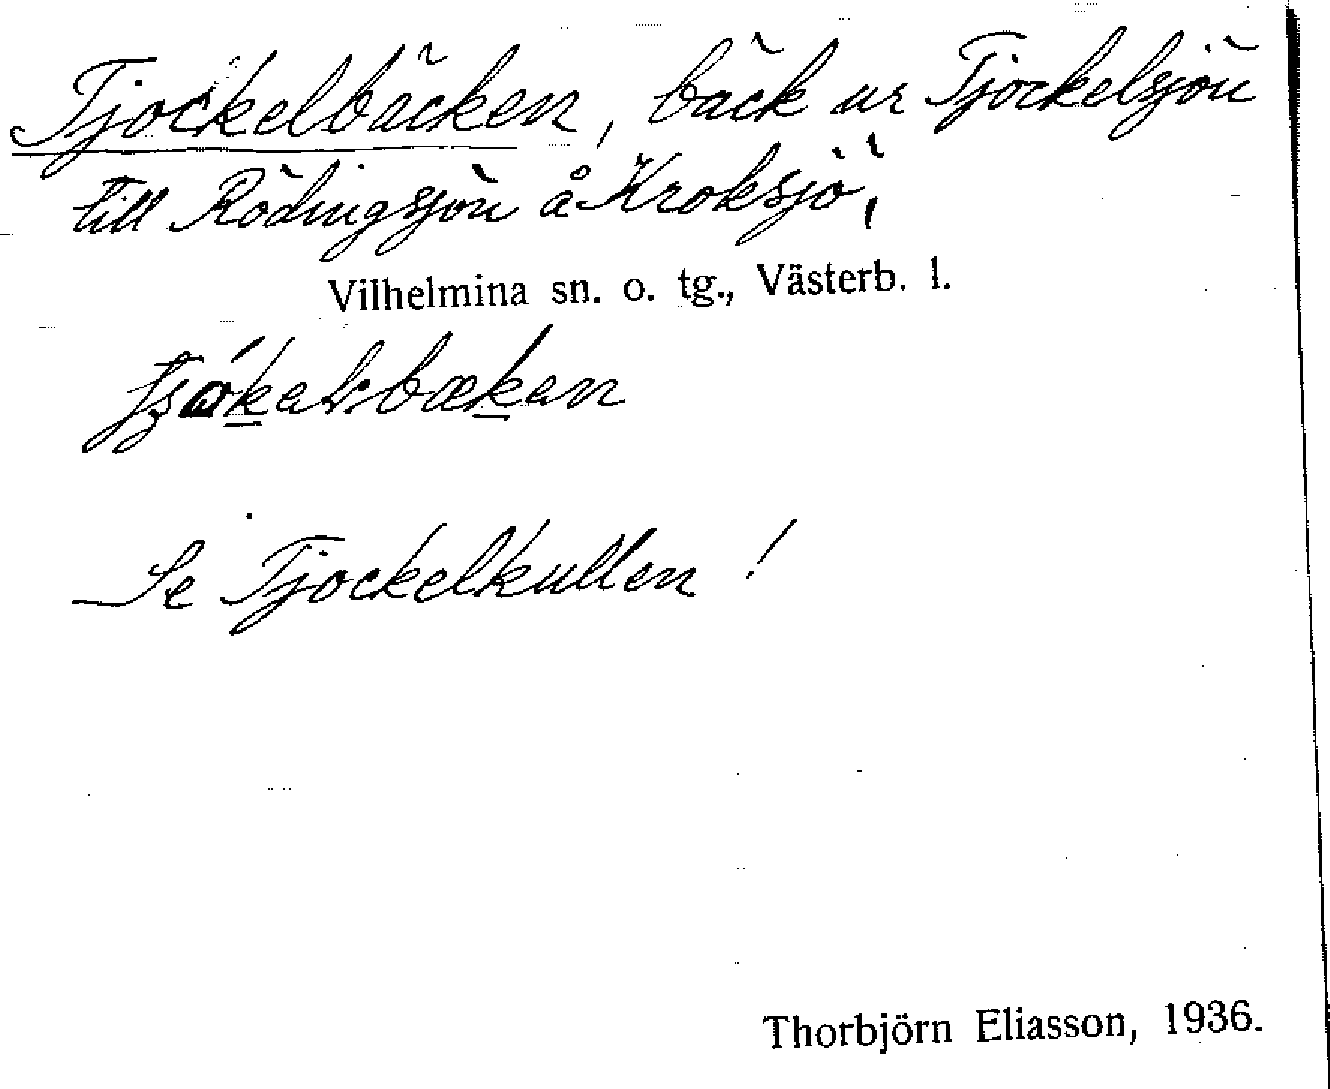 Tjockelbäcken, bäck ur Tjockelsjön
till Rödingsjön å Kroksjö,
Vilhelmina sn. o. tg., Västerb. l.
Se Tjockelkullen!
Thorbjörn Eliasson, 1936.